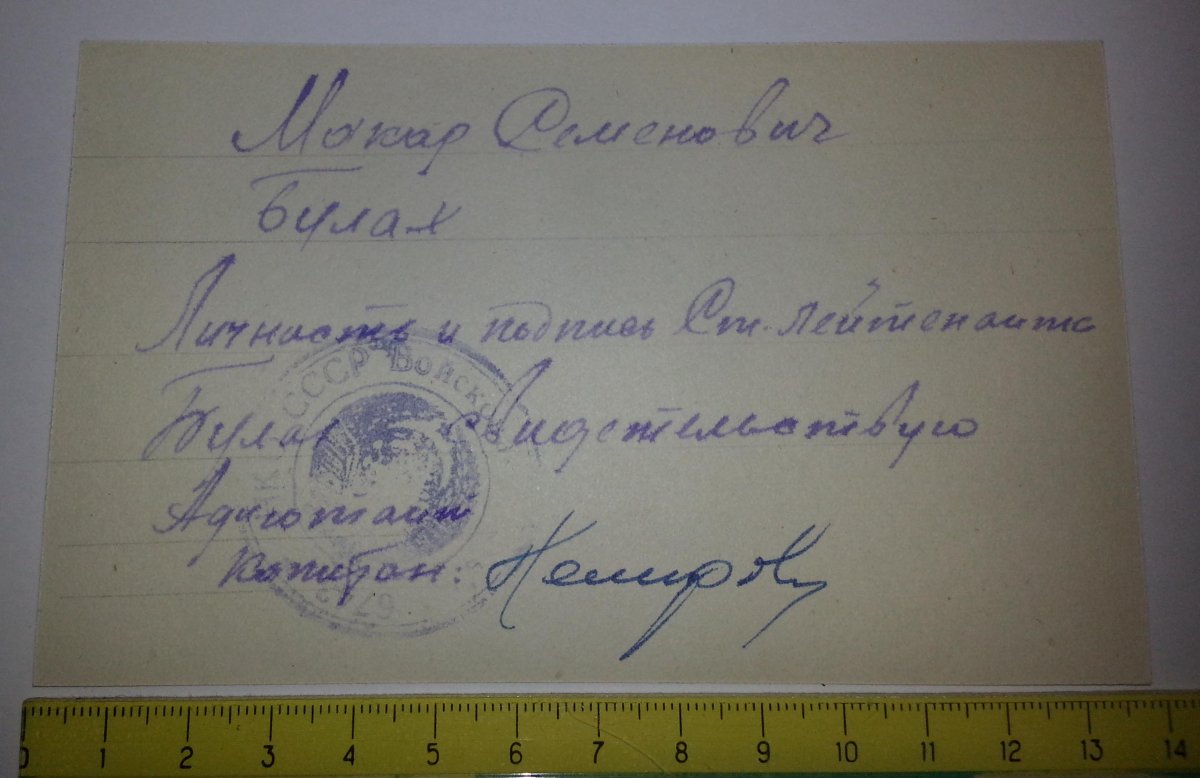 Макар Семенович
Булах
Личность и подпись Ст. лейтенанта
Булах свидетельствую
Адъютант
Капитан:
СССР Войсков
0 1 2 3 4 5 6 7 8 9 10 11 12 13 14